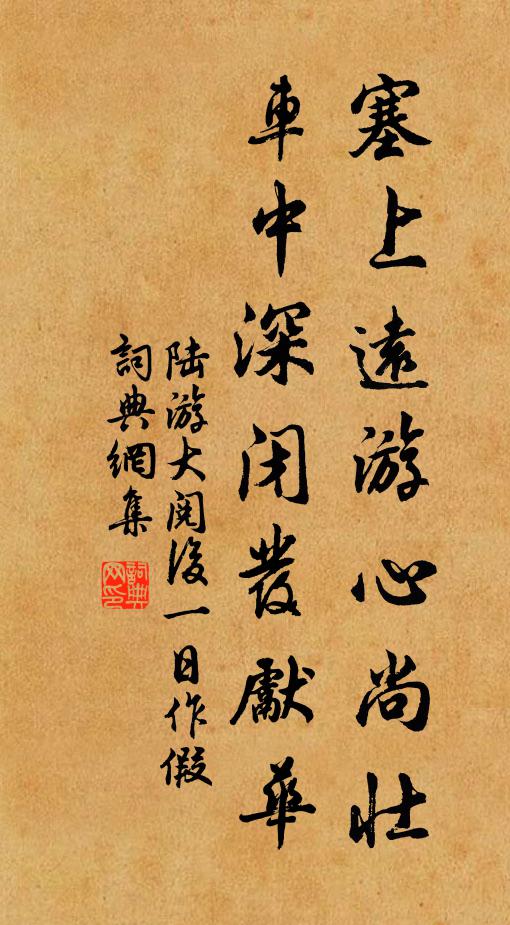 塞上遠游心尚壯
車中深閉發獻華
陸游大閱後一日作假
詞典網集
詞典网印